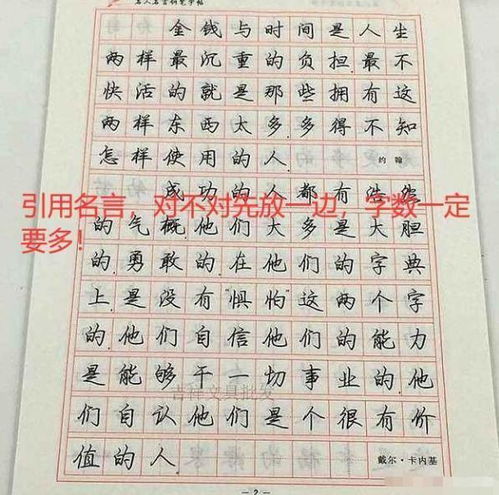 名人名言钢笔字帖
金钱与时间是人生
两样最沉重的负担.最不
快活的就是那些拥有这
两样东西太多,多得不知
怎样使用的人. 约翰
成功的人,都有浩然
引用名言,对不对先放一边，字数一定
要多！
的气概,他们大多是大胆
的.勇敢的.在他们的字典
上,是没有"惧怕"这两个字
的.他们自信他们的能力
是能够干一切事业的.他
们自认他们是个很有价
值的人. 戴尔·卡内基